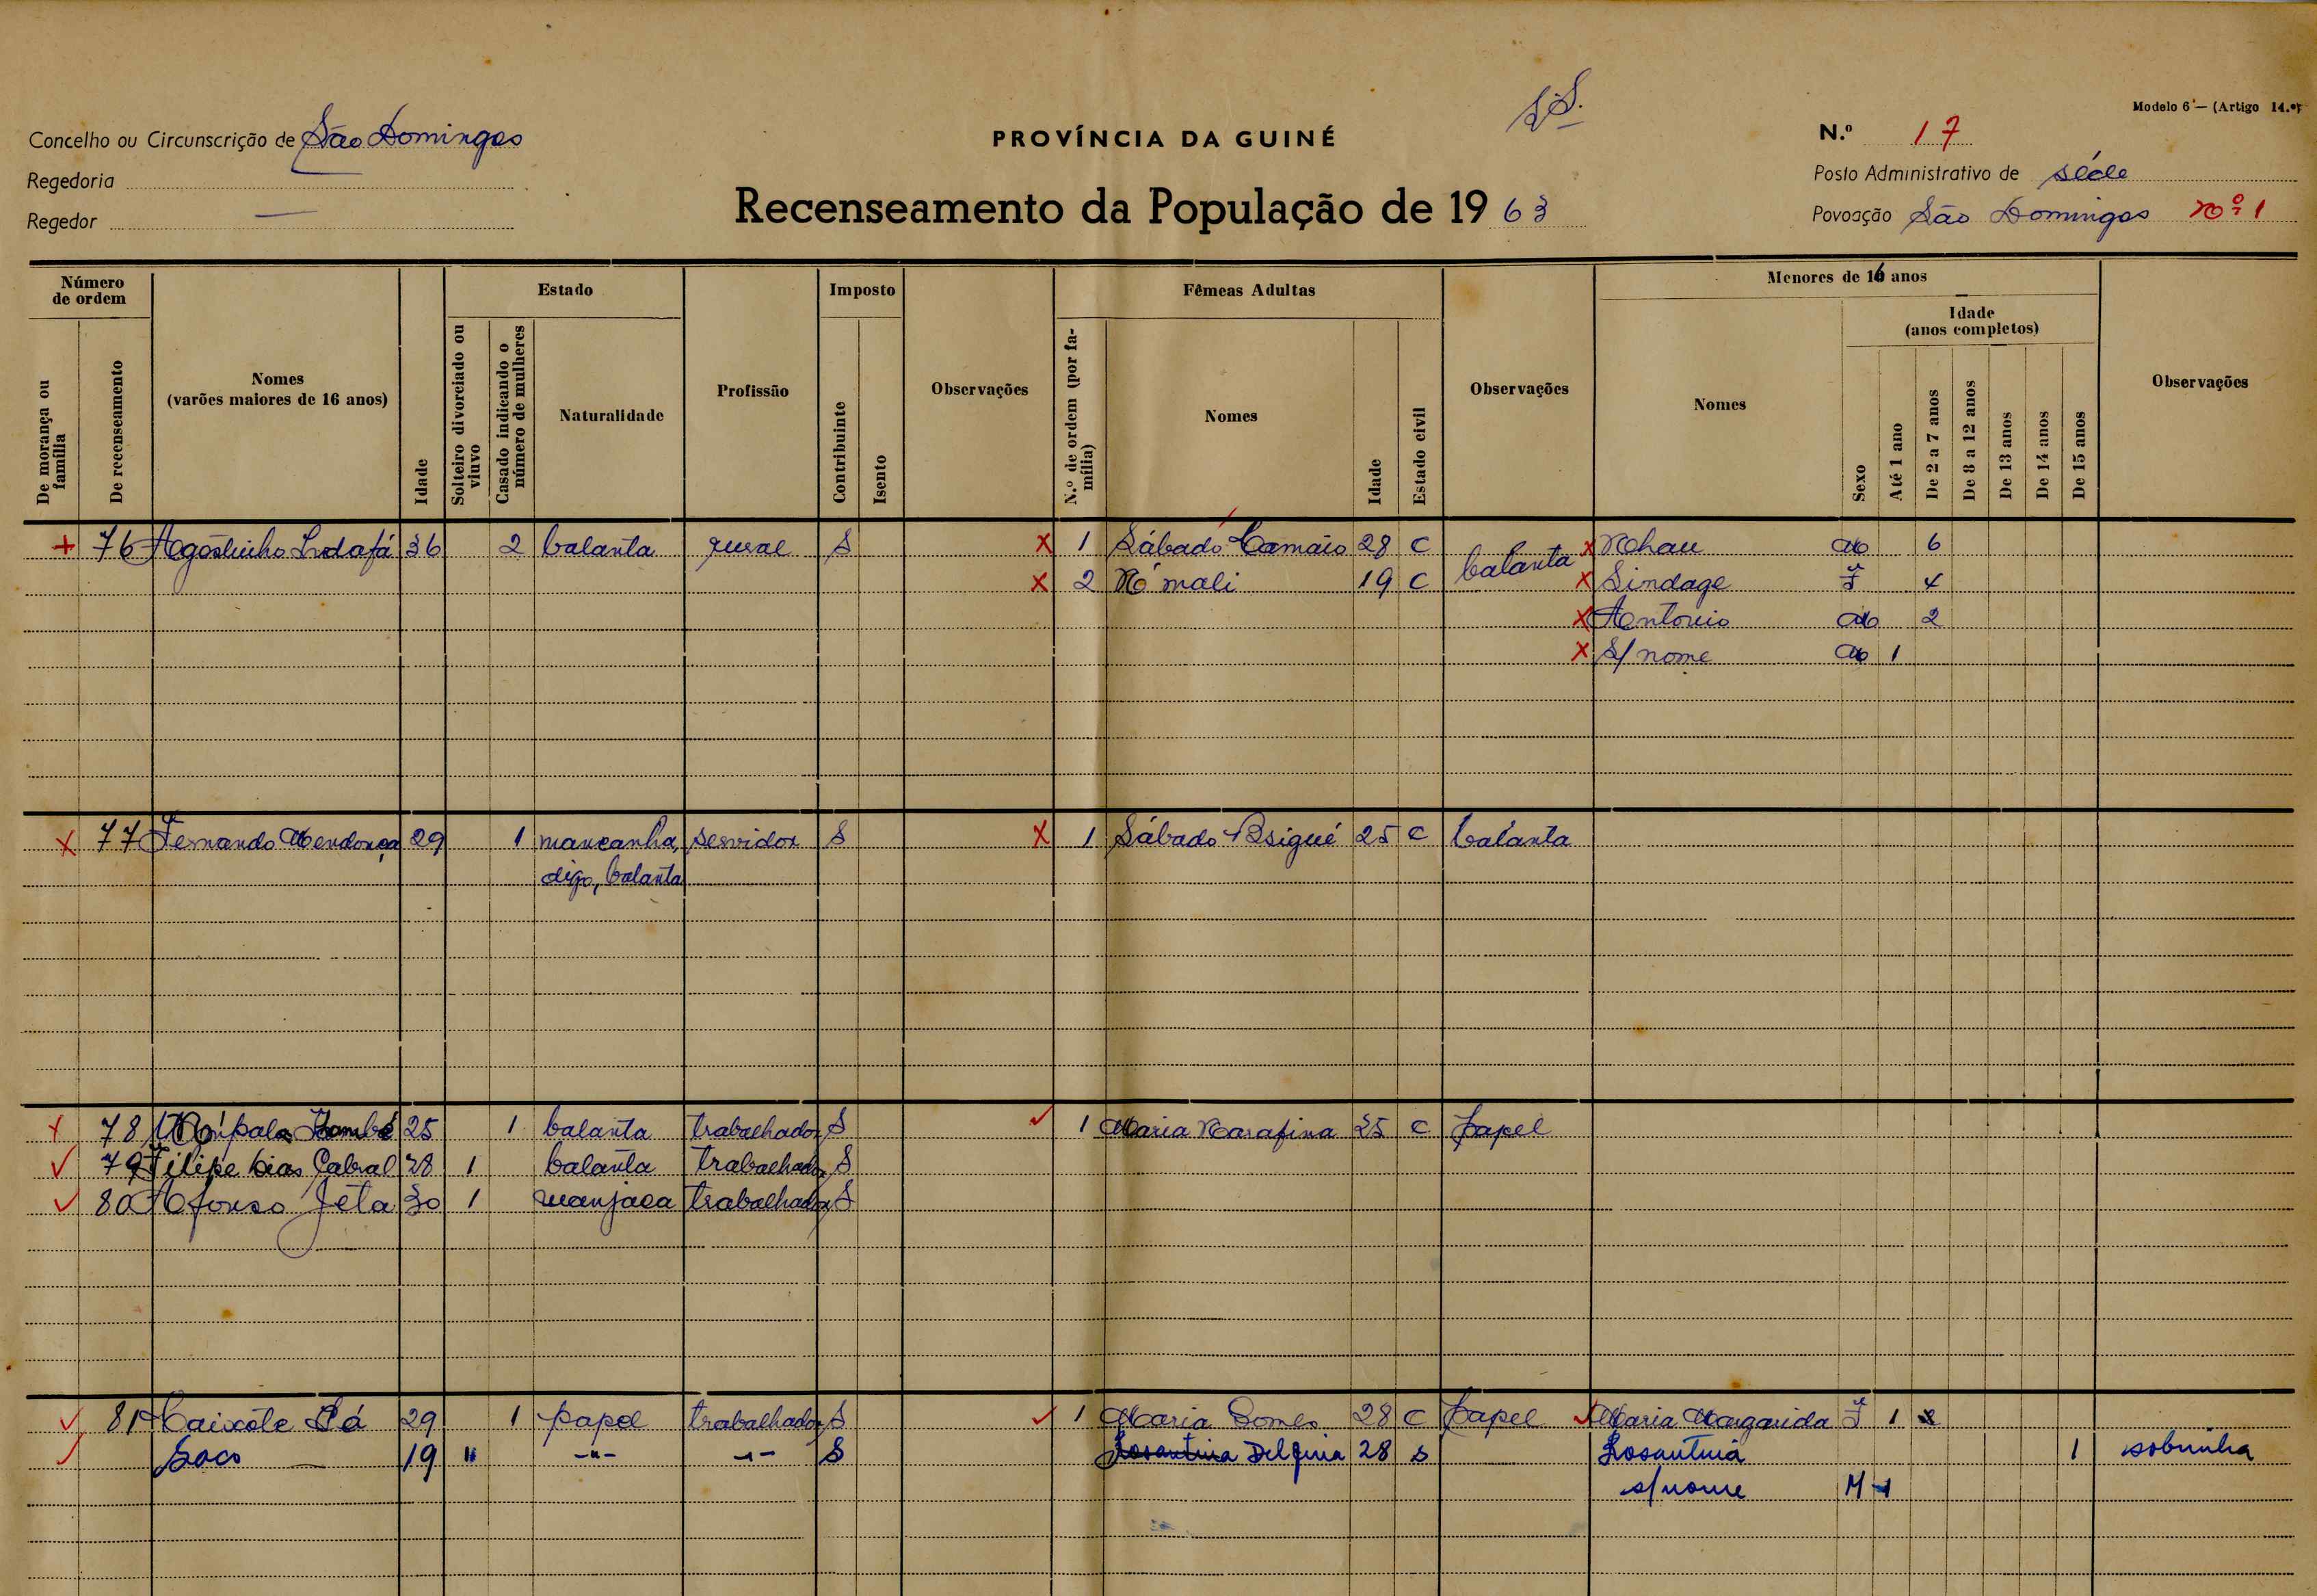 Modelo 6 — (Artigo 14.º)
Concelho ou Circunscrição de São Domingos
PROVÍNCIA DA GUINÉ
N.º 17
Regedoria
Posto Administrativo de séde
Regedor —
Recenseamento da População de 1963
Povoação São Domingos nº 1
Número de ordem
De morança ou família
De recenseamento
Nomes (varões maiores de 16 anos)
Idade
Estado
Solteiro divorciado ou viuvo
Casado indicando o número de mulheres
Naturalidade
Profissão
Imposto
Contribuinte
Isento
Observações
Fêmeas Adultas
N.º de ordem (por família)
Nomes
Idade
Estado civil
Observações
Menores de 16 anos
Nomes
Sexo
Idade (anos completos)
Até 1 ano
De 2 a 7 anos
De 8 a 12 anos
De 13 anos
De 14 anos
De 15 anos
Observações
76 Agostinho 36 2 balanta rural S 1 Sábado Camaio 28 C balanta Nhau M 6
2 N'mali 19 C Sindage F 4
Antonio M 2
S/nome M 1
77 Fernando Mendonça 29 1 mancanha, servidor S 1 Sábado 25 C balanta
digo, balanta
78 25 1 balanta trabalhador S 1 Maria Marafina C papel
79 Filipe Dias Cabral 28 1 balanta trabalhador S
80 Afonso Jeta 30 1 manjaca trabalhador S
81 Caixote Sá 29 1 papel trabalhador S 1 Maria Gomes 28 C papel Maria Margarida F 1
Saco — 19 " -"- -"- S Delfina 28 S Rosantina 1 sobrinha
s/nome M 1